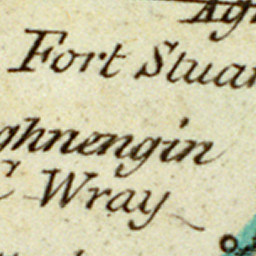 Fort Stuar
ghnengin
C Wray